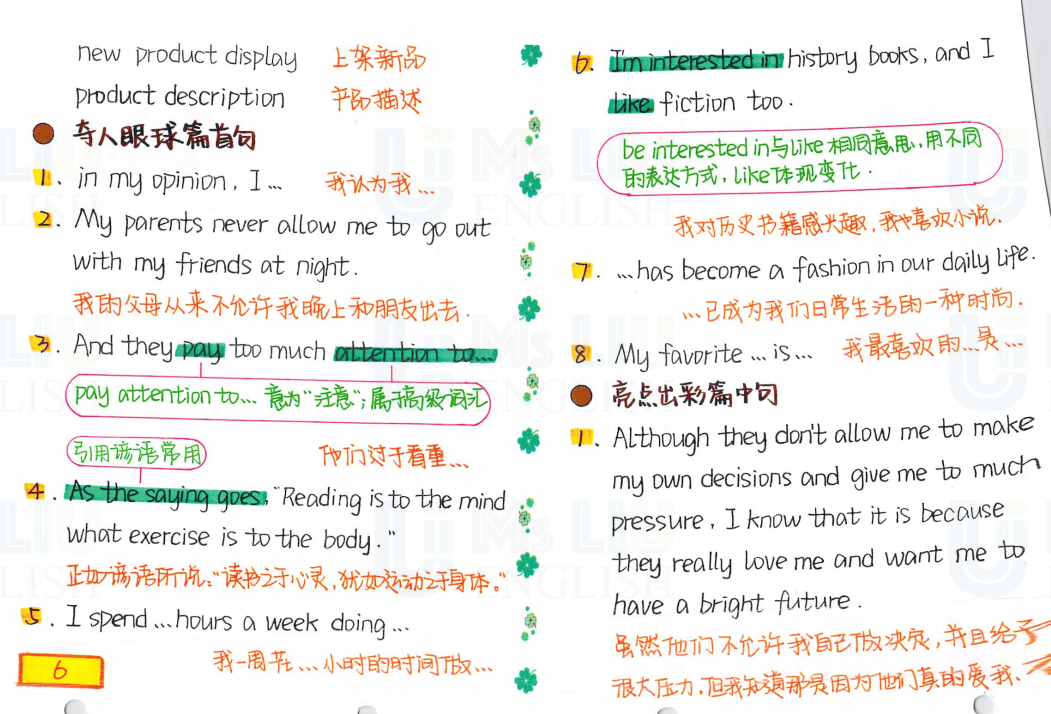 new product display 上架新品
product description 产品描述
夺人眼球篇首句
1. in my opinion, I... 我认为我...
2. My parents never allow me to go out
with my friends at night.
我的父母从来不允许我晚上和朋友出去.
3. And they pay too much attention to...
pay attention to... 意为"注意";属于高级词汇
引用谚语常用 他们过于看重...
4. As the saying goes, "Reading is to the mind
what exercise is to the body."
正如谚语所说:"读书之于心灵,犹如运动之于身体."
5. I spend...hours a week doing...
我一周花...小时的时间做...
6
6. I'm interested in history books, and I
like fiction too.
be interested in与like相同意思,用不同
的表达方式,like体现变化.
我对历史书籍感兴趣,我也喜欢小说.
7. ...has become a fashion in our daily life.
...已成为我们日常生活的一种时尚.
8. My favorite ... is ... 我最喜欢的...是...
亮点出彩篇中句
1. Although they don't allow me to make
my own decisions and give me to much
pressure, I know that it is because
they really love me and want me to
have a bright future.
虽然他们不允许我自己做决定,并且给予
很大压力,但我知道那是因为他们真的爱我,
Ms LIU
ENGLISH